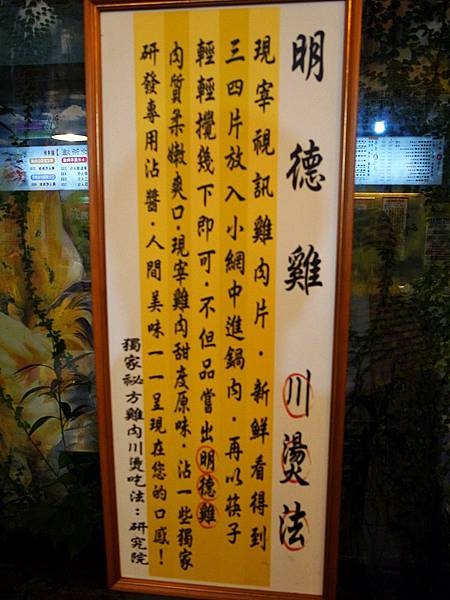 明德雞川燙法
現宰視訊雞肉片．新鮮看得到
三四片放入小網中進鍋內．再以筷子
輕輕攪幾下即可．不但品嘗出明德雞
肉質柔嫩爽口．現宰雞肉甜度原味．沾一些獨家
研發專用沾醬．人間美味一一呈現在您的口感！
獨家祕方雞肉川燙吃法：研究院